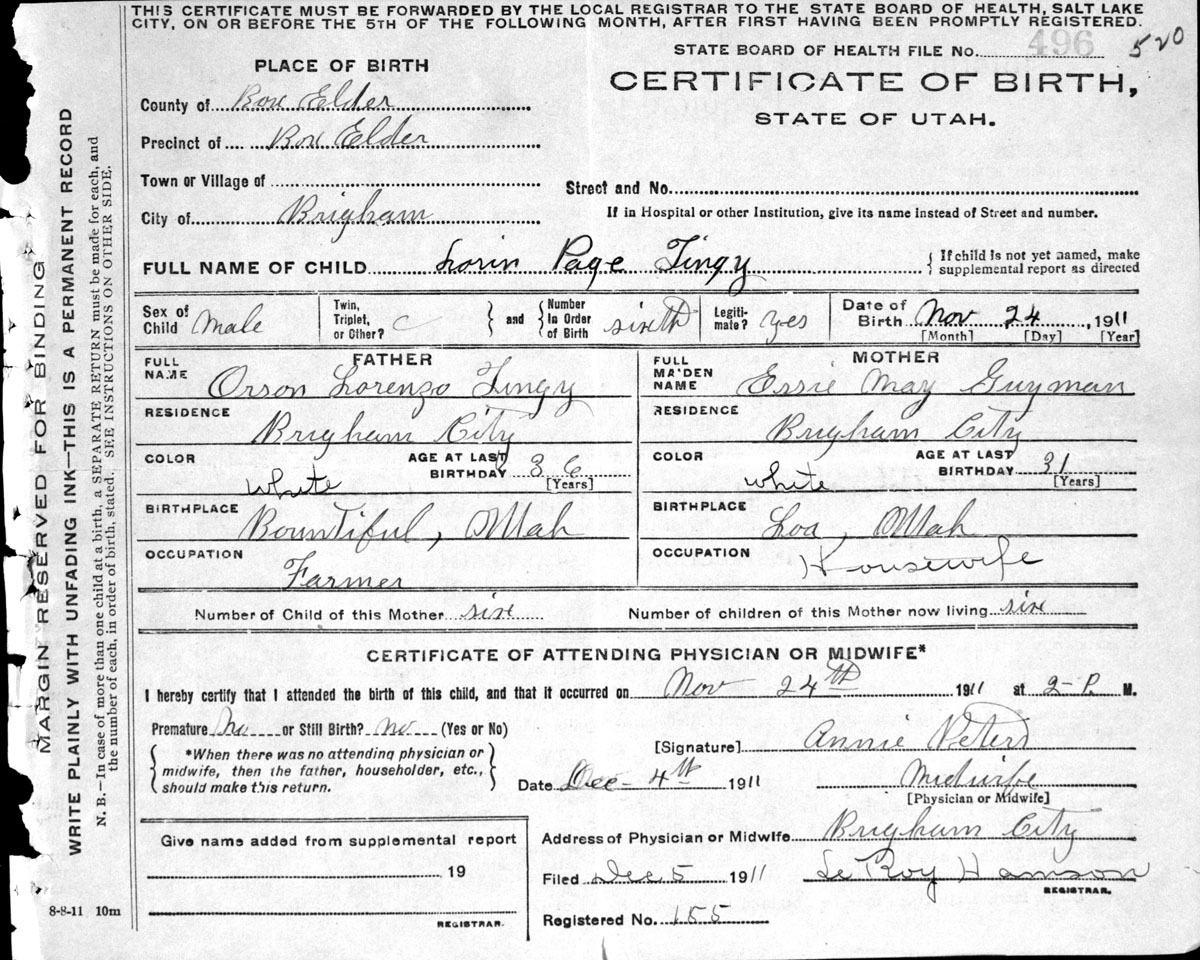 THIS CERTIFICATE MUST BE FORWARDED BY THE LOCAL REGISTRAR TO THE STATE BOARD OF HEALTH, SALT LAKE
CITY, ON OR BEFORE THE 5TH OF THE FOLLOWING MONTH, AFTER FIRST HAVING BEEN PROMPTLY REGISTERED.
STATE BOARD OF HEALTH FILE No. 496 520
PLACE OF BIRTH
CERTIFICATE OF BIRTH,
STATE OF UTAH.
County of Box Elder
Precinct of Box Elder
Town or Village of
Street and No.
City of Brigham
If in Hospital or other Institution, give its name instead of Street and number.
FULL NAME OF CHILD Lorin Page Tingy
If child is not yet named, make
supplemental report as directed
Sex of Child Male
Twin, Triplet, or Other?
and
Number In Order of Birth sixth
Legiti-mate? yes
Date of Birth Nov 24, 1911
[Month] [Day] [Year]
FATHER
FULL NAME Orson Lorenzo Tingy
RESIDENCE Brigham City
COLOR White
AGE AT LAST BIRTHDAY 36
[Years]
BIRTHPLACE Bountiful, Utah
OCCUPATION Farmer
MOTHER
FULL MAIDEN NAME Essie May Guyman
RESIDENCE Brigham City
COLOR White
AGE AT LAST BIRTHDAY 31
[Years]
BIRTHPLACE Loa, Utah
OCCUPATION Housewife
Number of Child of this Mother six
Number of children of this Mother now living six
CERTIFICATE OF ATTENDING PHYSICIAN OR MIDWIFE*
I hereby certify that I attended the birth of this child, and that it occurred on Nov 24th 1911 at 2-P. M.
Premature No or Still Birth? no (Yes or No)
*When there was no attending physician or
midwife, then the father, householder, etc.,
should make this return.
[Signature] Annie Peters
Date Dec - 4th 1911
Midwife
[Physician or Midwife]
Address of Physician or Midwife Brigham City
Give name added from supplemental report
19
REGISTRAR.
Filed Dec 5 1911
Le Roy
REGISTRAR.
Registered No. 155
MARGIN RESERVED FOR BINDING
WRITE PLAINLY WITH UNFADING INK—THIS IS A PERMANENT RECORD
N. B.—In case of more than one child at a birth, a SEPARATE RETURN must be made for each, and
the number of each, in order of birth, stated. SEE INSTRUCTIONS ON OTHER SIDE.
8-8-11 10m